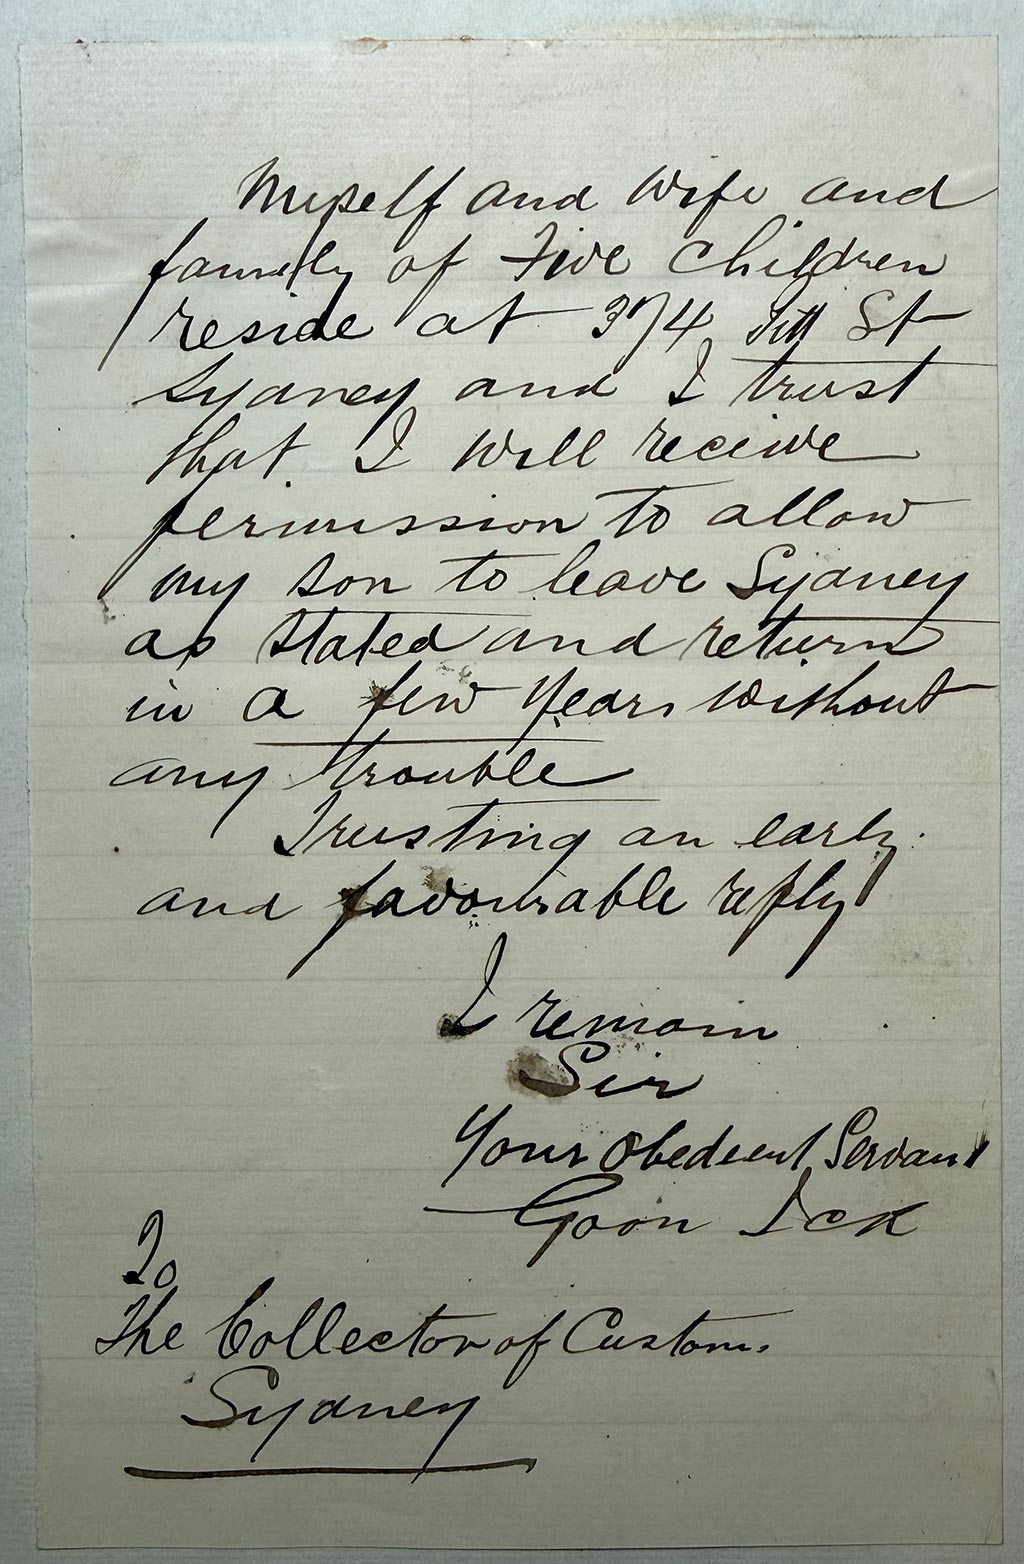 Myself and Wife and
family of Five Children
reside at 374 Pitt St
Sydney and I trust
that I will receive
permission to allow
my son to leave Sydney
as stated and return
in a few years without
any trouble
Trusting an early
and favourable reply
I remain
Sir
Your Obedient Servant
Goon Ick
To
The Collector of Customs
Sydney